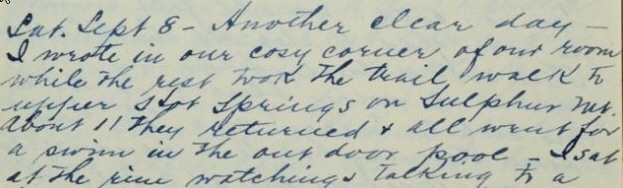 Sat. Sept 8 - Another clear day -
I wrote in our cosy corner of our room
while the rest took the trail walk to
upper Hot Springs on Sulphur Mt.
About 11 they returned & all went for
a swim in the out door pool - I sat
at the rim watchings talking to a